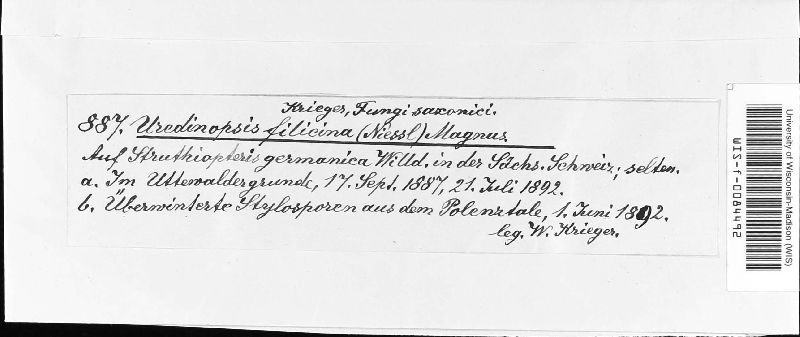 Krieger, Fungi saxonici.
887. Uredinopsis filicina (Niessl) Magnus
Auf Struthiopteris germanica Willd. in der Sächs. Schweiz; selten.
a. Im Uttewaldergrunde, 17. Sept. 1887, 21. Juli 1892.
b. Überwinterte Stylosporen aus dem Polenztale, 1. Juni 1892.
leg. W. Krieger.
University of Wisconsin-Madison (WIS)
WIS-f-0084492